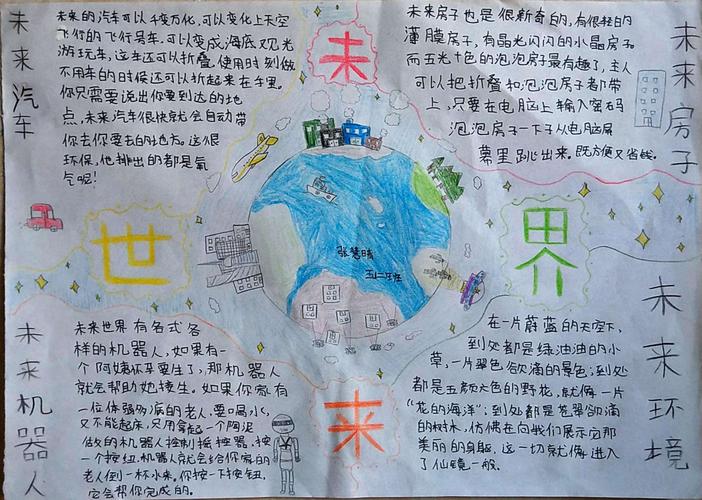 未来汽车
未来的汽车可以千变万化,可以变化上天空
飞行的飞行号车.可以变成海底观光
游玩车,这车还可以折叠,使用时刻做
不用车的时候还可以折起来在手里.
你只需要说出你要到达的地
点,未来汽车很快就会自动带
你去你要去的地方。这很
环保,他排出的都是氧
气呢!
未
未来房子也是很新奇的,有很轻的
薄膜房子,有晶光闪闪的水晶房子
而五光十色的泡泡房子最有趣了,主人
可以把折叠和泡泡房子都带
上,只要在电脑上输入密码
泡泡房子一下子从电脑屏
幕里跳出来.既方便又省钱.
未来房子
世
界
张慧晴
五二班
未来机器人
未来世界有各式各
样的机器人,如果有一
个阿姨怀孕要生了,那机器人
就会帮助她接生。如果你家有
一位体弱多病的老人,要喝水,
又不能起床,只用拿起一个陶泥
做的机器人控制摇控器.按
一个按纽.机器人就会给你家的
老人倒一杯水来。你按一下按钮,
它会帮你完成的。
来
在一片蔚蓝的天空下,
到处都是绿油油的小
草,一片翠色欲滴的景色;到处
都是五颜六色的野花,就像一片
“花的海洋”;到处都是苍翠欲滴
的树木,仿佛在向我们展示它那
美丽的身躯,这一切就像进入
了仙镜一般.
未来环境